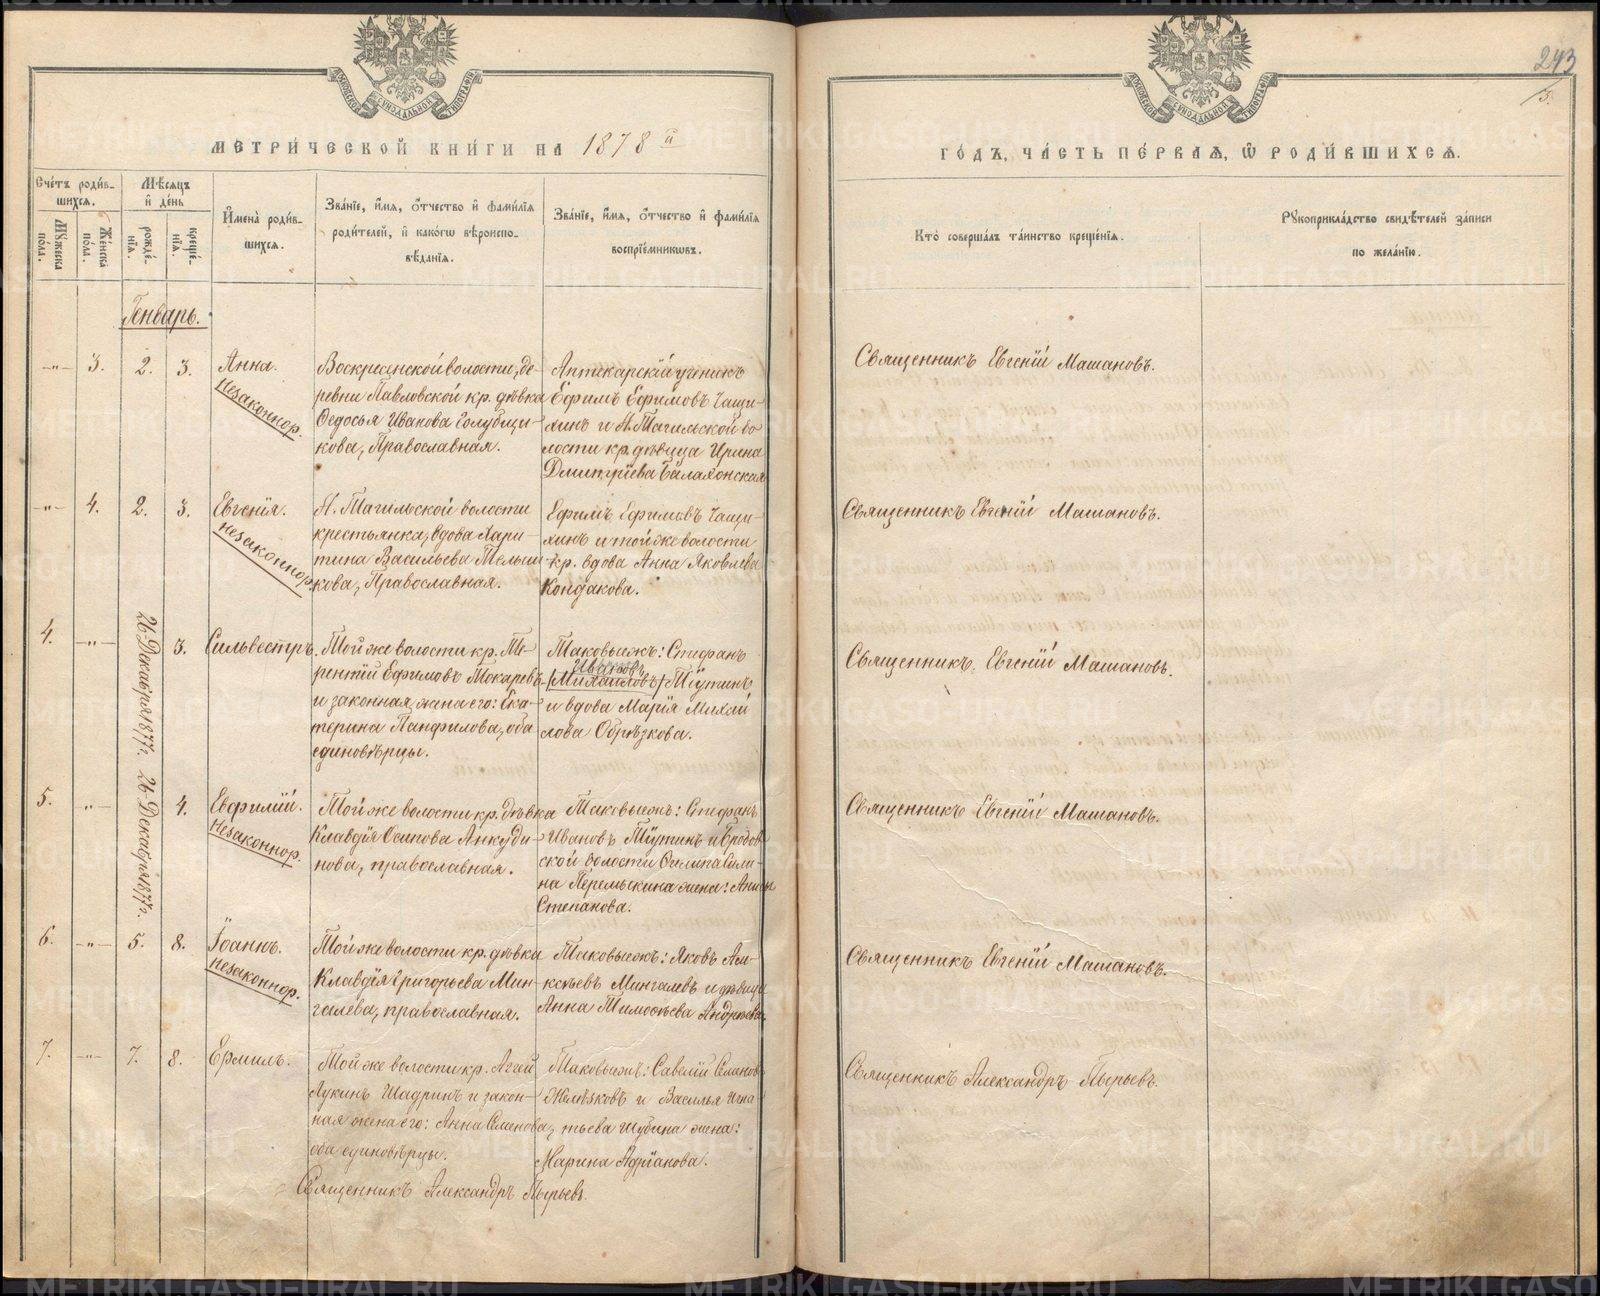 243
5.
МОСКОВСКОЙ СѴНОДАЛЬНОЙ ТИПОГРАФІИ
МОСКОВСКОЙ СѴНОДАЛЬНОЙ ТИПОГРАФІИ
МЕТРИ́ЧЕСКОЙ КНИ́ГИ НА 1878 й
ГО́ДЪ, ЧА́СТЬ ПЕ́РВАѦ, Ѡ҆ РОДИ́ВШИХСѦ.
Сче́тъ роди́в-
шихсѧ.
Мꙋ́жеска по́ла.
Же́нска по́ла.
Мѣ́сѧцъ
и҆ де́нь
рожде́-
нїѧ.
креще́-
нїѧ.
И҆мена̀ роди́в-
шихсѧ.
Зва́нїе, и҆́мѧ, ѻ҆́тчество и҆ фами́лїѧ
роди́телей, и҆ како́гѡ вѣроиспо-
вѣ́данїѧ.
Зва́нїе, и҆́мѧ, ѻ҆́тчество и҆ фами́лїѧ
воспрїе́мникѡвъ.
Кто̀ соверша́лъ та́инство креще́нїѧ.
Рꙋкоприкла́дство свидѣ́телей за́писи
по жела́нїю.
Генварь.
-"- 3. 2. 3.
Анна.
Незаконнор.
Воскресенской волости, де-
ревни Павловской кр. дѣвка
Ѳедосья Иванова Голубчи-
кова, Православная.
Аптекарскій ученикъ
Ефимъ Ефимовъ Чащи-
хинъ и Н. Тагильской во
лости кр. дѣвица Ирина
Дмитріева Балахонская
Священникъ Евгеній Машановъ.
-"- 4. 2. 3.
Евгенія.
Незаконнор.
Н. Тагильской волости
крестьянка, вдова Хари-
тина Васильева Мельни
кова, Православная.
Ефимъ Ефимовъ Чащи-
хинъ и той же волости
кр. вдова Анна Яковлева
Кондакова.
Священникъ Евгеній Машановъ.
4. -"- 26 Декабря 1877 г. 3.
Сильвестръ.
Той же волости кр. Те-
рентій Ефимовъ Токаревъ
и законная жена его: Ека-
терина Панфилова, оба
единовѣрцы.
Таковыежъ: Стефанъ
Ивановъ
/Михайловъ/ Тютинъ
и вдова Марія Михай
лова Обрѣзкова.
Священникъ. Евгеній Машановъ.
5. -"- 26 Декабря 1877 г. 4.
Евфимій.
Незаконнор.
Той же волости кр. дѣвка
Клавдія Осипова Анкуди-
нова, православная.
Таковыежъ: Стефанъ
Ивановъ Тютинъ и Бродов
ской волости Филипа Сили-
на Перемыкина жена: Анна
Степанова.
Священникъ Евгеній Машановъ.
6. -"- 5. 8.
Іоаннъ.
Незаконнор.
Той же волости кр. дѣвка
Клавдія Григорьева Мин-
галева, православная.
Таковыежъ: Яковъ Але-
ксѣевъ Мингалевъ и дѣвица
Анна Тимоѳѣева Андреева.
Священникъ Евгеній Машановъ.
7. -"- 7. 8.
Ермилъ.
Той же волости кр. Агай
Лукинъ Шадринъ и закон-
ная жена его: Анна Семенова,
оба единовѣрцы.
Таковыежъ: Савелій Семенов
Желѣзковъ и Василья Игна
тьева Шубина жена:
Марина Адріанова.
Священникъ Александръ Пырьевъ.
Священникъ Александръ Пырьевъ.
METRIKI.GASO-URAL.RU